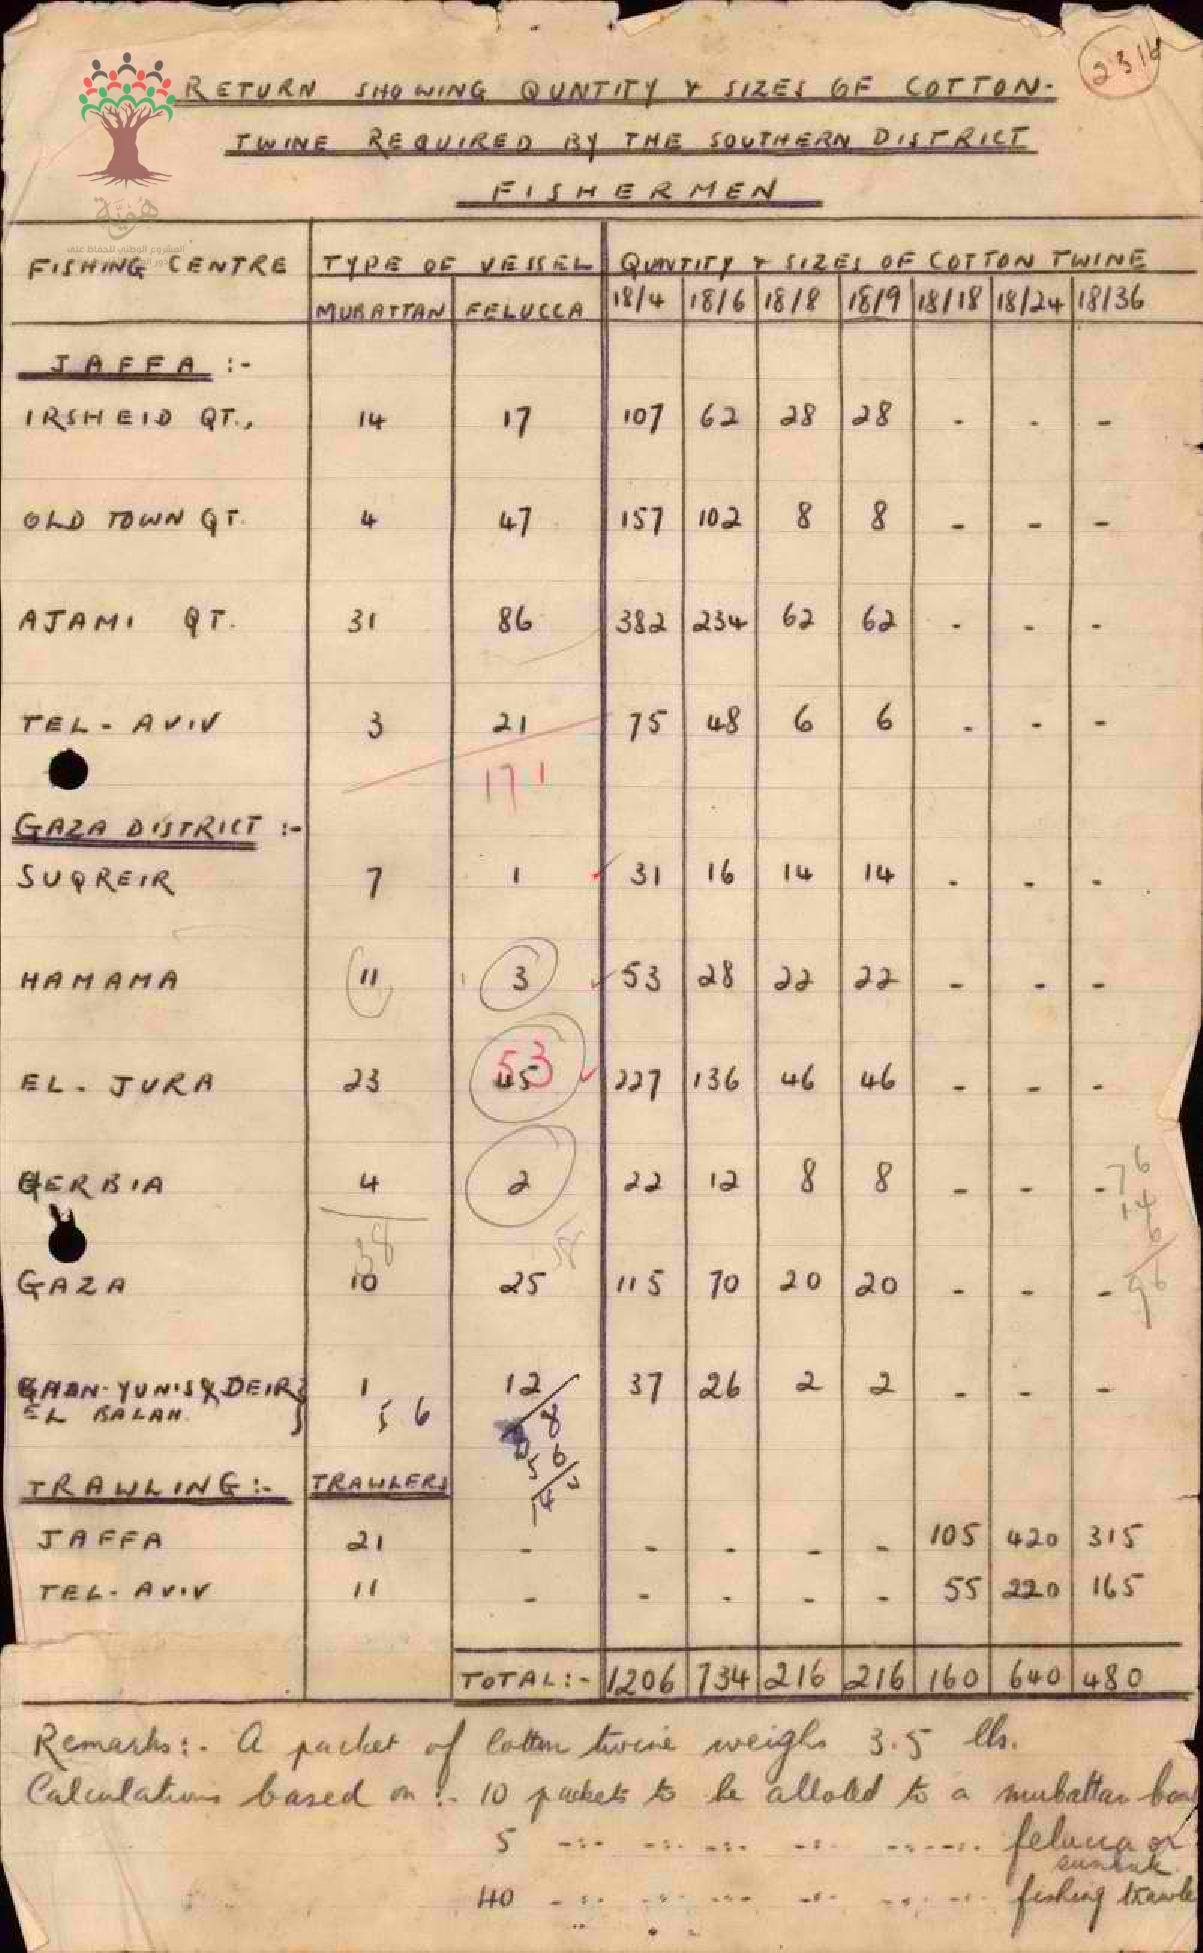 2316
RETURN SHOWING QUNTITY & SIZES OF COTTON-
TWINE REQUIRED BY THE SOUTHERN DISTRICT
FISHERMEN
هُويَّة
المشروع الوطني للحفاظ على
FISHING CENTRE TYPE OF VESSEL QUNTITY & SIZES OF COTTON TWINE
MURATTAN FELUCCA 18/4 18/6 18/8 18/9 18/18 18/24 18/36
JAFFA :-
IRSHEID QT., 14 17 107 62 28 28 - - -
OLD TOWN QT. 4 47 157 102 8 8 - - -
AJAMI QT. 31 86 382 234 62 62 - - -
TEL-AVIV 3 21 75 48 6 6 - - -
171
GAZA DISTRICT :-
SUQREIR 7 1 31 16 14 14 - - -
HAMAMA 11 3 53 28 22 22 - - -
53
EL-JURA 23 45 227 136 46 46 - - -
HERBIA 4 2 22 12 8 8 - - -
76
14
6
38
96
GAZA 10 25 115 70 20 20 - - -
KHAN-YUNIS & DEIR} 1 12 37 26 2 2 - - -
EL BALAH }
56 8
56
TRAWLING:- TRAWLERS
JAFFA 21 - - - - - 105 420 315
TEL-AVIV 11 - - - - - 55 220 165
TOTAL:- 1206 734 216 216 160 640 480
Remarks:- A packet of Cotton twine weighs 3.5 lbs.
Calculations based on :- 10 packets to be alloted to a mubattan boa
5 -:- -:- -:- -:- -:-:- felucca or
sunbuk
40 -:- -:- -:- -:- -:- -:- fishing trawle